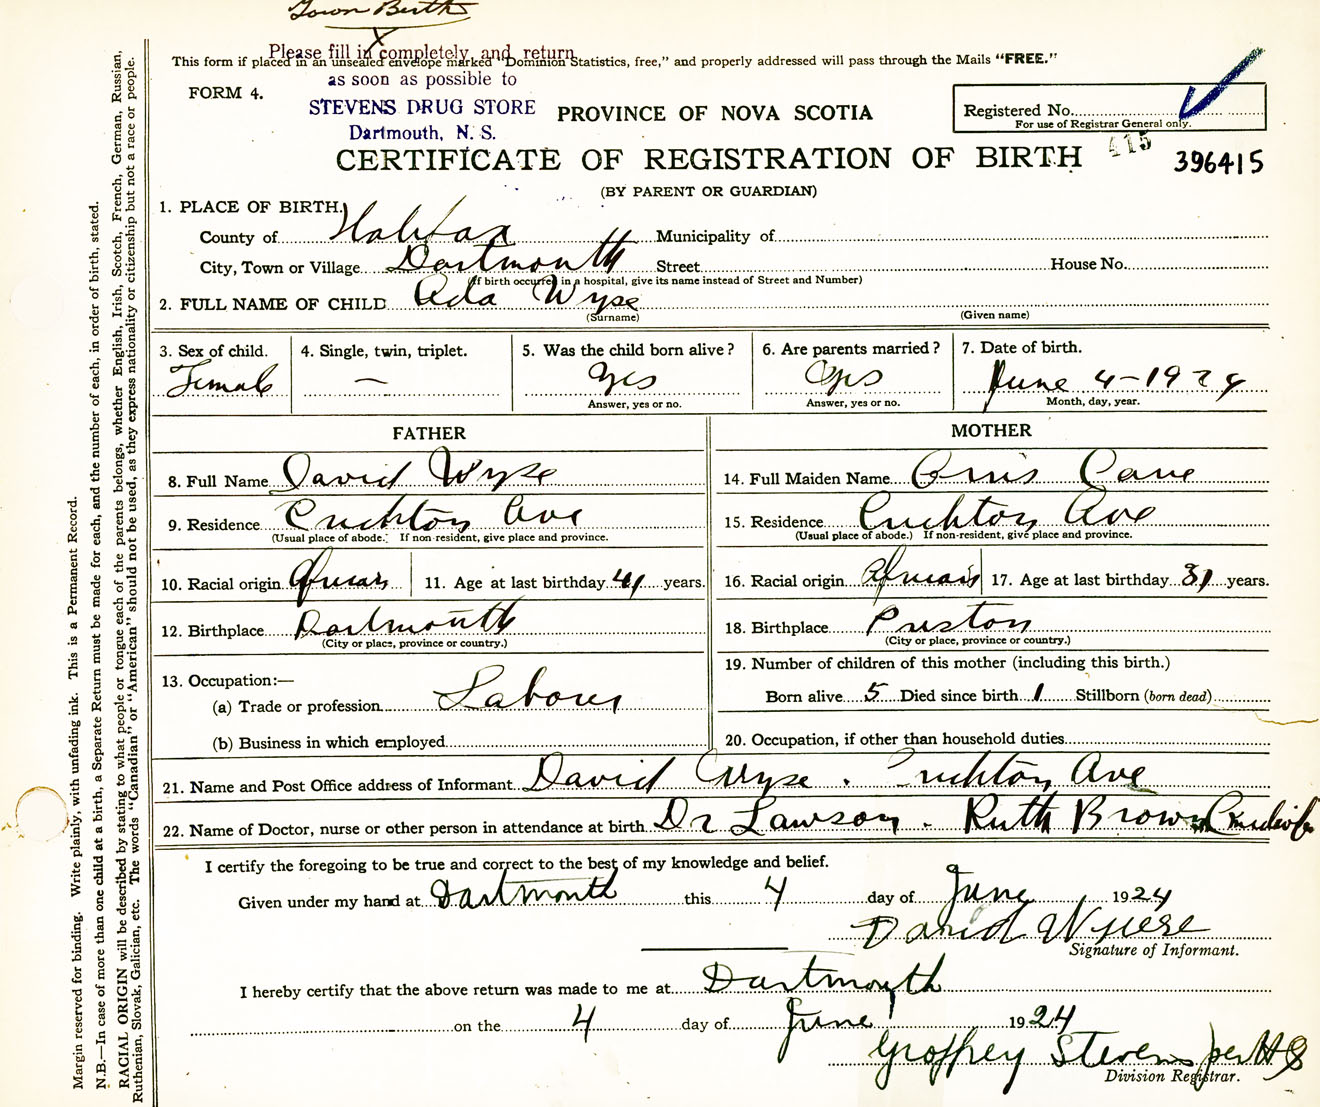 Town Birth
X
Please fill in completely and return
This form if placed in an unsealed envelope marked "Dominion Statistics, free," and properly addressed will pass through the Mails "FREE."
as soon as possible to
FORM 4.
STEVENS DRUG STORE
Dartmouth, N. S.
PROVINCE OF NOVA SCOTIA
Registered No.
For use of Registrar General only.
CERTIFICATE OF REGISTRATION OF BIRTH
415
396415
(BY PARENT OR GUARDIAN)
1. PLACE OF BIRTH.
County of Halifax Municipality of
City, Town or Village Dartmouth Street House No.
(If birth occurred in a hospital, give its name instead of Street and Number)
2. FULL NAME OF CHILD Ada Wyse
(Surname) (Given name)
3. Sex of child. 4. Single, twin, triplet. 5. Was the child born alive? 6. Are parents married? 7. Date of birth.
Female — Yes Yes June 4-1924
Answer, yes or no. Answer, yes or no. Month, day, year.
FATHER MOTHER
8. Full Name David Wyse 14. Full Maiden Name Cane
9. Residence Crichton Ave 15. Residence Crichton Ave
(Usual place of abode. If non-resident, give place and province. (Usual place of abode.) If non-resident, give place and province.
10. Racial origin African 11. Age at last birthday 41 years. 16. Racial origin African 17. Age at last birthday 31 years.
12. Birthplace Dartmouth 18. Birthplace Preston
(City or place, province or country.) (City or place, province or country.)
13. Occupation:— 19. Number of children of this mother (including this birth.)
(a) Trade or profession Labourer Born alive 5 Died since birth 1 Stillborn (born dead)
(b) Business in which employed 20. Occupation, if other than household duties
21. Name and Post Office address of Informant David Wyse . Crichton Ave
22. Name of Doctor, nurse or other person in attendance at birth Dr Lawson . Ruth Brown (midwife
I certify the foregoing to be true and correct to the best of my knowledge and belief.
Given under my hand at Dartmouth this 4 day of June 1924
David Wyse
Signature of Informant.
I hereby certify that the above return was made to me at Dartmouth
on the 4 day of June 1924
Geoffrey Stevens per HS
Division Registrar.
Margin reserved for binding. Write plainly, with unfading ink. This is a Permanent Record.
N.B.—In case of more than one child at a birth, a Separate Return must be made for each, and the number of each, in order of birth, stated.
RACIAL ORIGIN will be described by stating to what people or tongue each of the parents belongs, whether English, Irish, Scotch, French, German, Russian,
Ruthenian, Slovak, Galician, etc. The words "Canadian" or "American" should not be used, as they express nationality or citizenship but not a race or people.